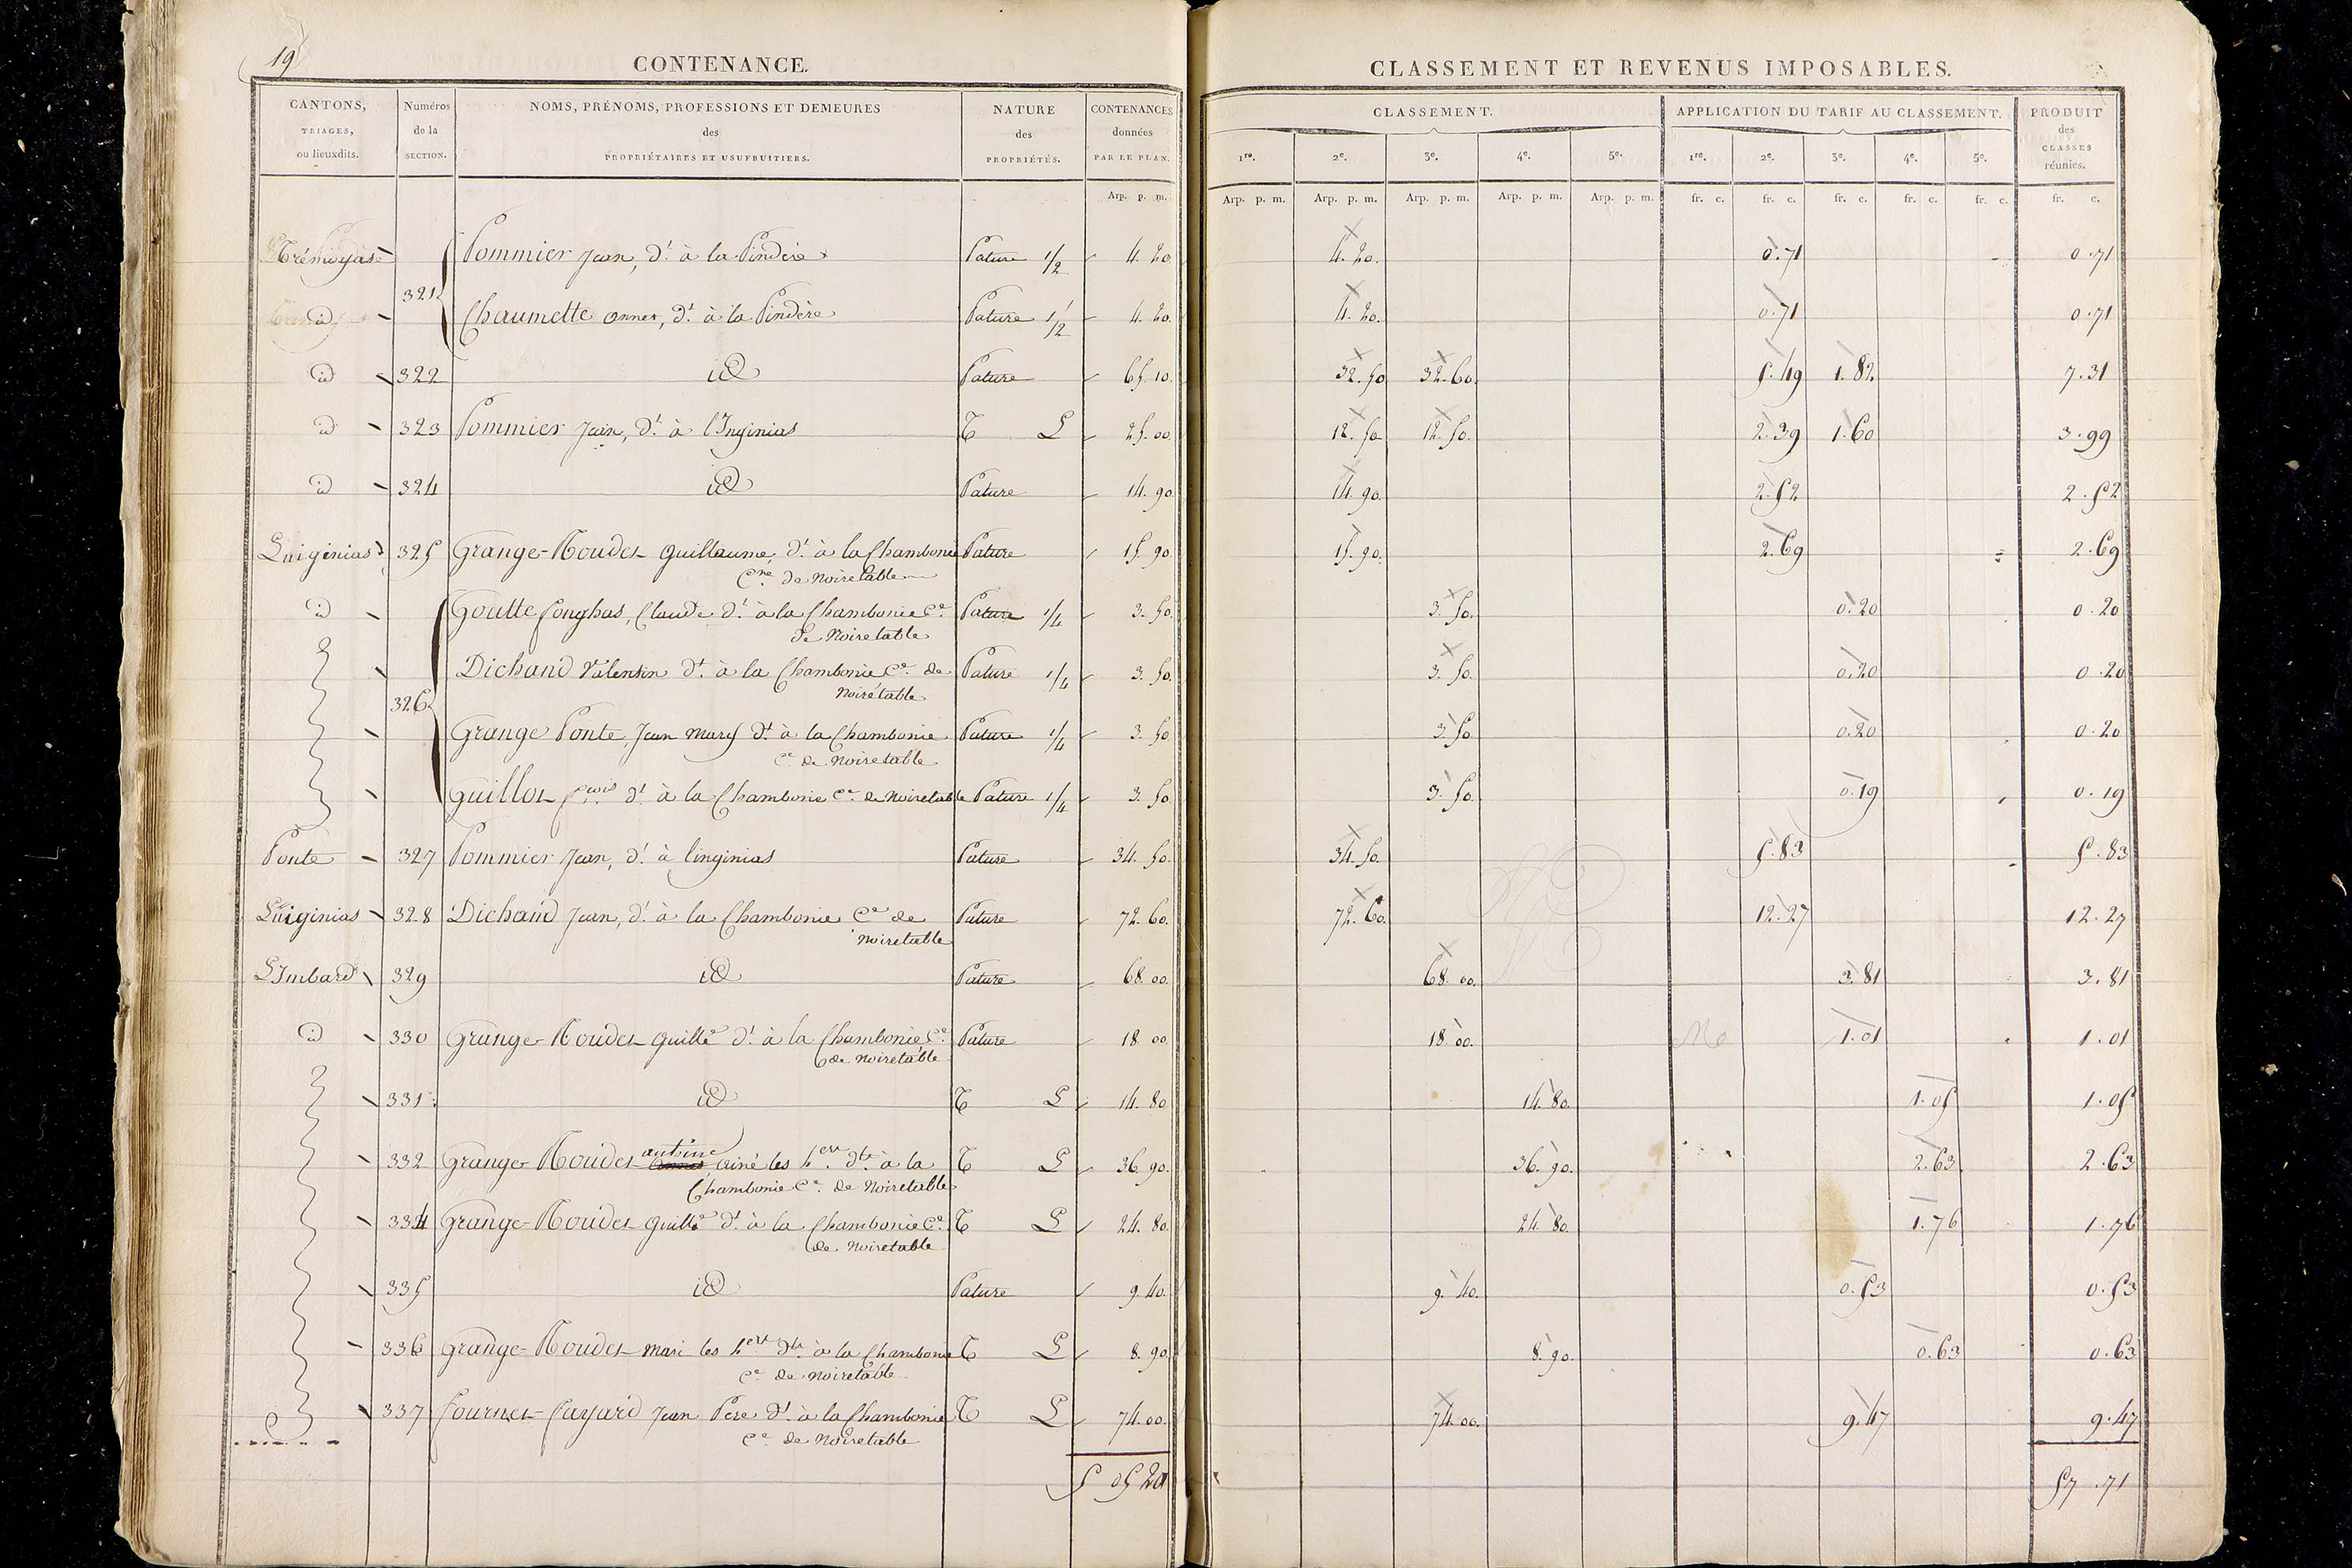 19
CONTENANCE.
CLASSEMENT ET REVENUS IMPOSABLES.
CANTONS, TRIAGES, ou lieuxdits.
Numéros de la SECTION.
NOMS, PRÉNOMS, PROFESSIONS ET DEMEURES des PROPRIÉTAIRES ET USUFRUITIERS.
NATURE des PROPRIÉTÉS.
CONTENANCES données PAR LE PLAN.
CLASSEMENT.
APPLICATION DU TARIF AU CLASSEMENT.
PRODUIT des CLASSES réunies.
1re. 2e. 3e. 4e. 5e. 1re. 2e. 3e. 4e. 5e.
Arp. p. m. Arp. p. m. Arp. p. m. Arp. p. m. Arp. p. m. Arp. p. m. fr. c. fr. c. fr. c. fr. c. fr. c. fr. c.
Pommier Jean, dt. à la Pindère Pature 1/2 4. 20 4. 20. 0.71 0.71
321
id Chaumette annet, dt. à la Pindère Pature 1/2 4. 20. 4. 20. 0.71 0.71
id 322 id Pature 65. 10. 32. 50 32. 60. 5.49 1.82 7.31
id 323 Pommier Jean, dt. à l'Inginias T L 25. 00. 12. 50 12. 50. 2.39 1.60 3.99
id 324 id Pature 14. 90. 14. 90. 2.52 2.52
Luiginias 325 Grange-Roudet Guillaume dt. à la Chambonie Pature 15. 90. 15. 90. 2.69 2.69
Cne de Noiretable
id Goutte Claude dt. à la Chambonie Ce. Pature 1/4 3. 50. 3. 50. 0.20 0.20
de Noiretable
Dichand Valentin dt. à la Chambonie Ce. de Pature 1/4 3. 50. 3. 50. 0.20 0.20
Noirétable
326
Grange Ponte, Jean Mary dt. à la Chambonie Pature 1/4 3. 50 3. 50 0.20 0.20
Ce. de Noiretable
Guillot dt. à la Chambonie Ce. de Noiretable Pature 1/4 3. 50 3. 50. 0.19 0.19
Ponte 327 Pommier Jean, dt. à linginias Pature 34. 50. 34. 50. 5.83 5.83
Luiginias 328 Dichand Jean, dt. à la Chambonie Ce. de Pature 72. 60. 72. 60. 12.27 12.27
Noiretable
L'Imbard 329 id Pature 68. 00. 68. 00. 3.81 3.81
id 330 Grange-Roudet Guille dt. à la Chambonie Ce. Pature 18. 00. 18. 00. 1.01 1.01
de Noiretable
331 id T L 14. 80 14. 80. 1.05 1.05
antoine
332 Grange Roudet ainé les hers dts. à la T L 36. 90. 36. 90. 2.63 2.63
Chambonie Ce. de Noiretable
334 Grange-Roudet Guille dt. à la Chambonie Ce. T L 24. 80. 24. 80. 1.76 1.76
de Noiretable
335 id Pature 9. 40. 9. 40. 0.53 0.53
336 Grange-Roudet les hers dts. à la Chambonie T L 8. 90. 8. 90. 0.63 0.63
Ce. de Noiretable
337 Jean Pere dt. à la Chambonie T L 74. 00. 74. 00. 9.47 9.47
Ce. de Noiretable
5 05 20
57.71